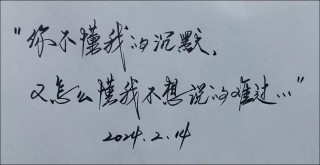 "你不懂我的沉默，
又怎么懂我不想说的难过..."
2024.2.14